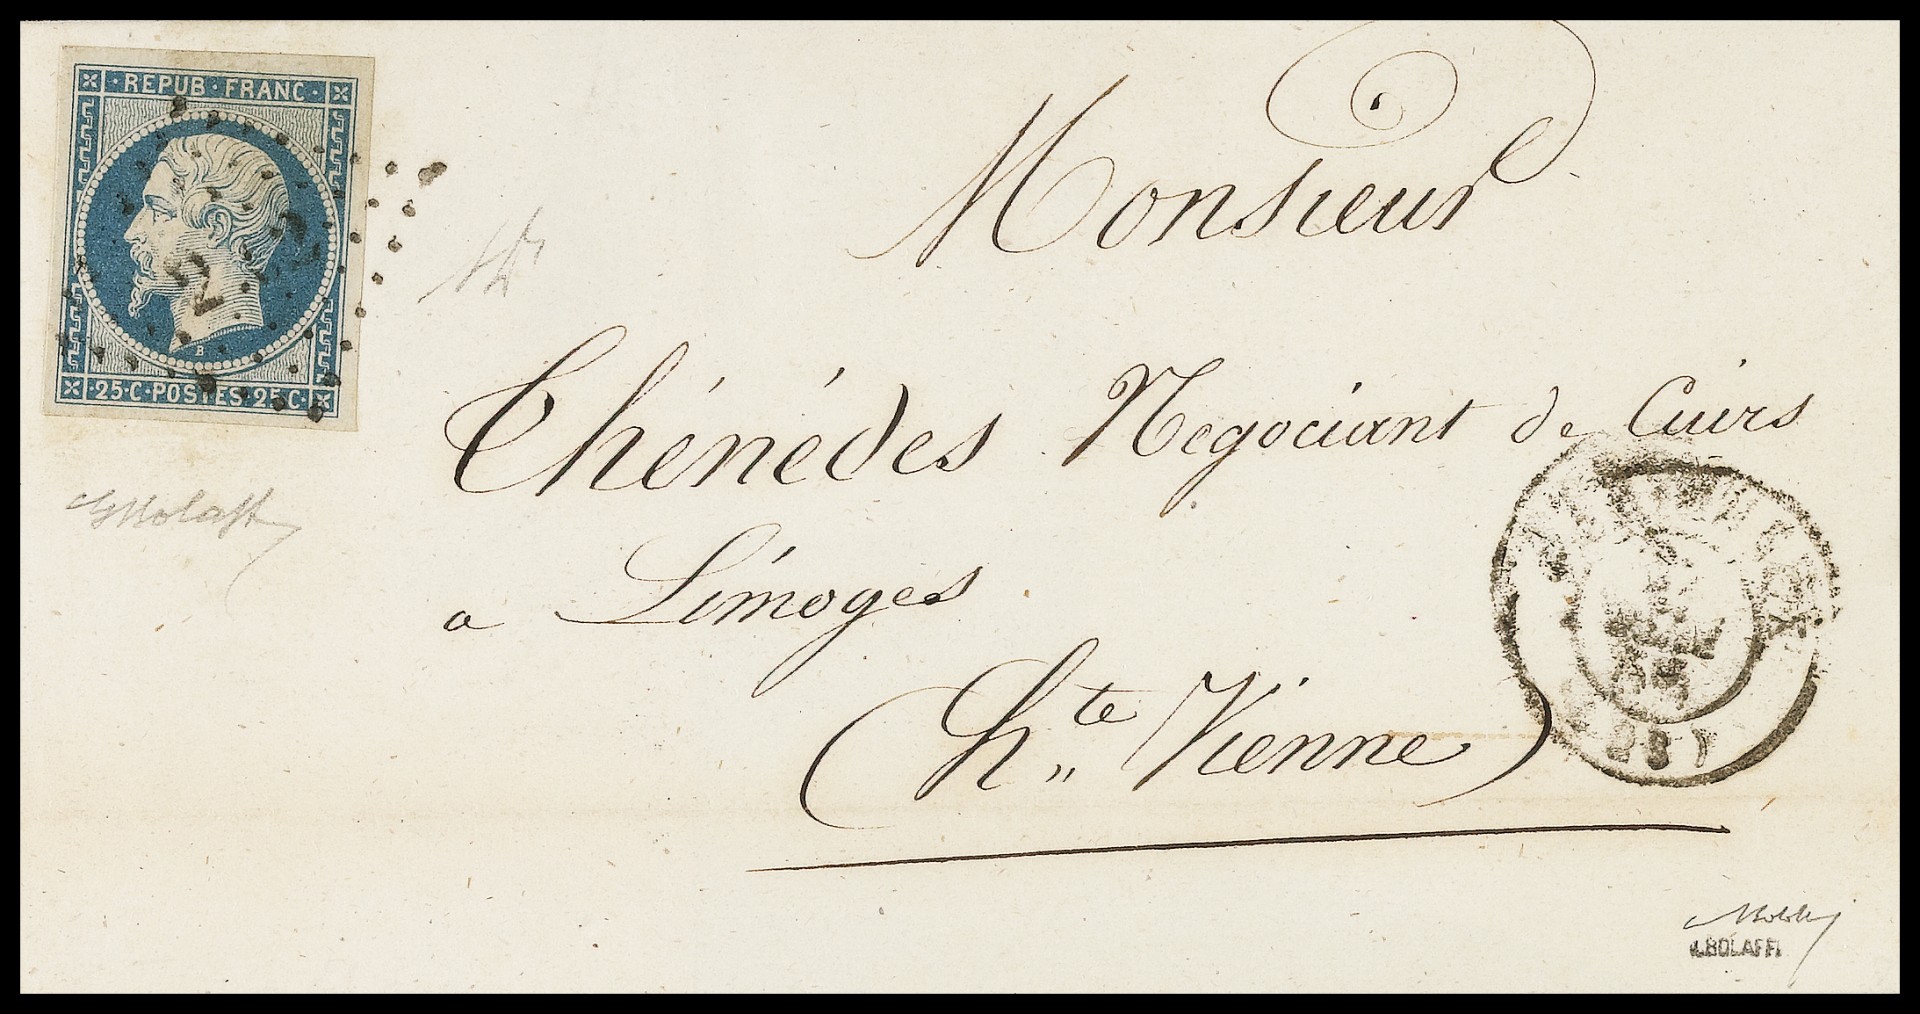 · REPUB · FRANC ·
B
· 25 · C · POSTES · 25 C ·
Monsieur
Thénédes Negociant de Cuirs
a Limoges
(Hte Vienne)
BOLAFFI